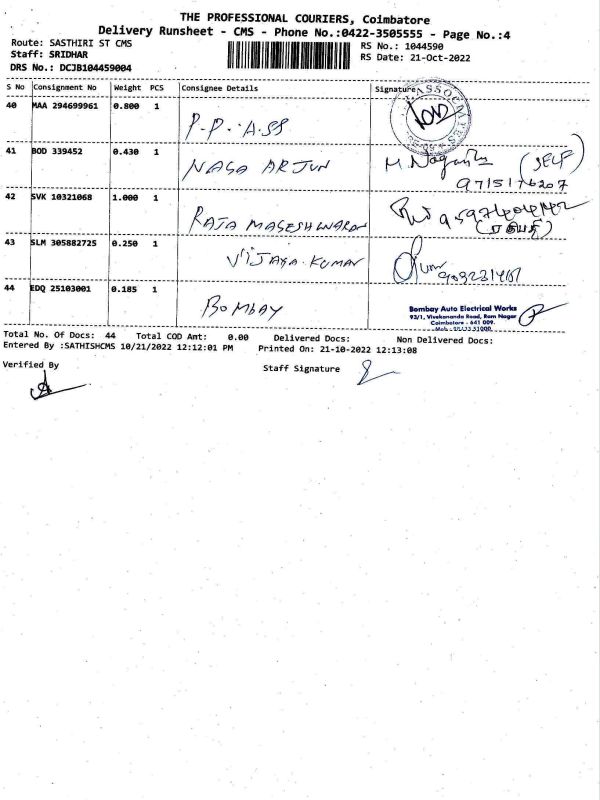 THE PROFESSIONAL COURIERS, Coimbatore
Delivery Runsheet - CMS - Phone No.:0422-3505555 - Page No.:4
Route: SASTHIRI ST CMS
RS No.: 1044590
Staff: SRIDHAR
RS Date: 21-Oct-2022
DRS No.: DCJB104459004
S No Consignment No Weight PCS Consignee Details Signature
40 MAA 294699961 0.800 1 P.P. ASS
41 BOD 339452 0.430 1 NAGA ARJUN M. (SELF)
9715176207
42 SVK 10321068 1.000 1 RAJA MAGESHWARAN
43 SLM 305882725 0.250 1 VIJAYA KUMAR
44 EDQ 25103001 0.185 1 BOMBAY
Bombay Auto Electrical Works
93/1, Vivekananda Road, Ram Nagar
Coimbatore - 641 009.
Total No. Of Docs: 44 Total COD Amt: 0.00 Delivered Docs: Non Delivered Docs:
Entered By :SATHISHCMS 10/21/2022 12:12:01 PM Printed On: 21-10-2022 12:13:08
Verified By Staff Signature